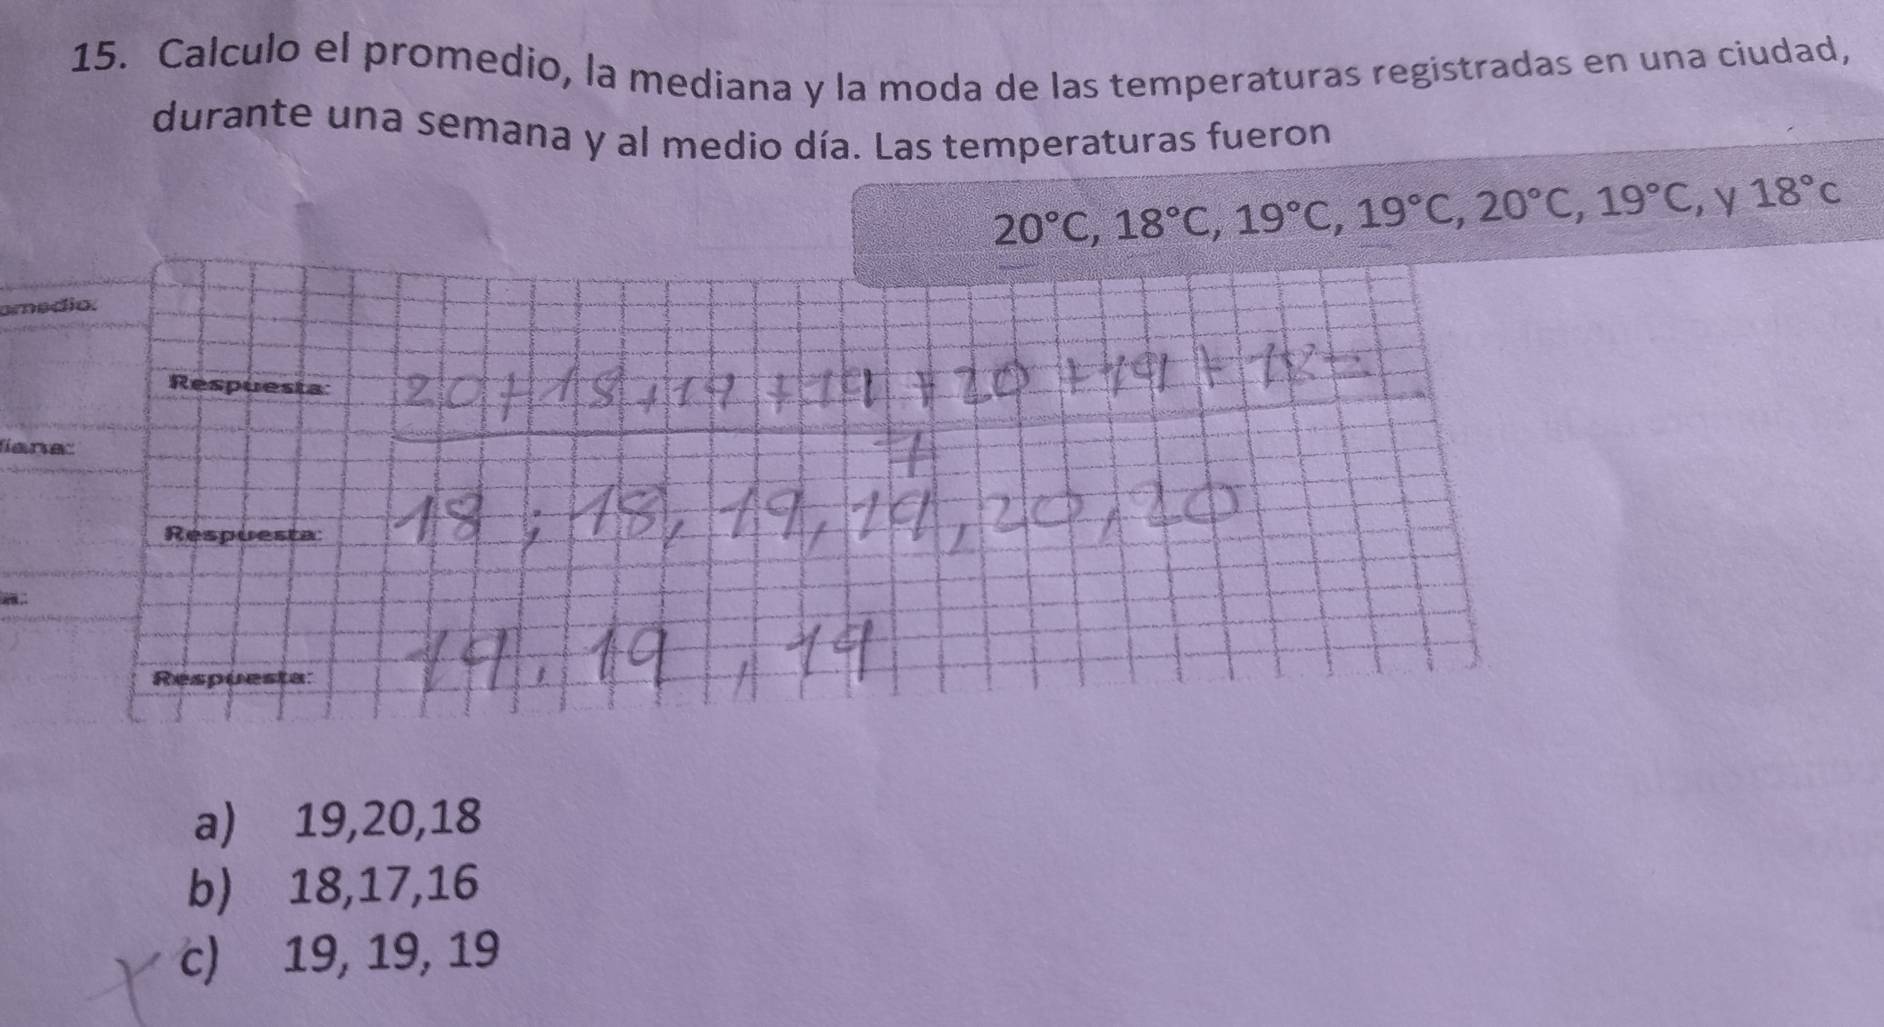 15. Calculo el promedio, la mediana y la moda de las temperaturas registradas en una ciudad,
durante una semana y al medio día. Las temperaturas fueron
20°C, 18°C, 19°C, 19°C, 20°C, 19°C, y 18°c
omedio.
Respuesta: 20+18+19+19+20+19+18=
7
diana:
Respuesta: 18; 18, 19, 19, 20, 20
a:
Respuesta: 19, 19, 19
a) 19,20,18
b) 18,17,16
c) 19, 19, 19